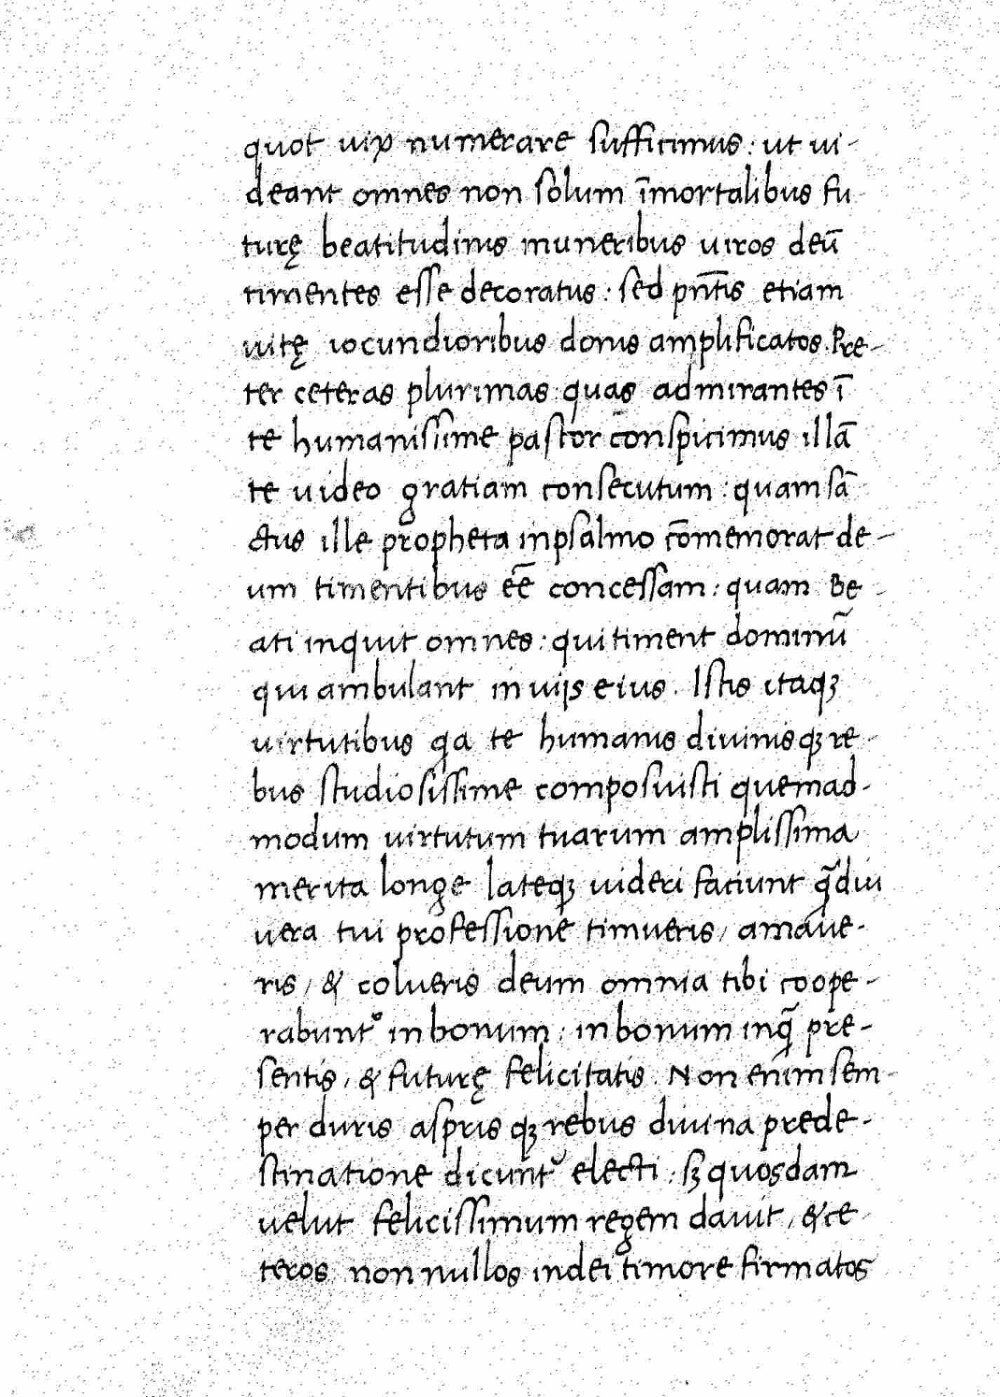 quot uix numerare sufficimus: ut ui-
deant omnes non solum īmortalibus fu
turę beatitudinis muneribus uiros deū
timentes esse decoratus: sed pn̄tis etiam
uitę iocundioribus donis amplificatos. Pre-
ter ceteras plurimas quas admirantes ī
te humanissime pastor conspicimus illā
te uideo gratiam consecutum: quam sā
ctus ille propheta in psalmo cōmemorat de-
um timentibus eē concessam: quam Be-
ati inquit omnes: qui timent dominū
qui ambulant in uijs eius. Istis itaqꝫ
uirtutibus qa te humanis diuinisqꝫ re-
bus studiosissime composuisti quemad-
modum uirtutum tuarum amplissima
merita longe lateqꝫ uideri faciunt q̄diu
uera tui professione timueris, amaue-
ris, & colueris deum omnia tibi coope-
rabunt᷑ in bonum: in bonum inq̄ pre-
sentis, & futurę felicitatis. Non enim sem-
per duris asprisqꝫ rebus diuina prede-
stinatione dicunt᷑ electi: sꝫ quosdam
uelut felicissimum regem dauit, & ce-
teros non nullos in dei timore firmatos